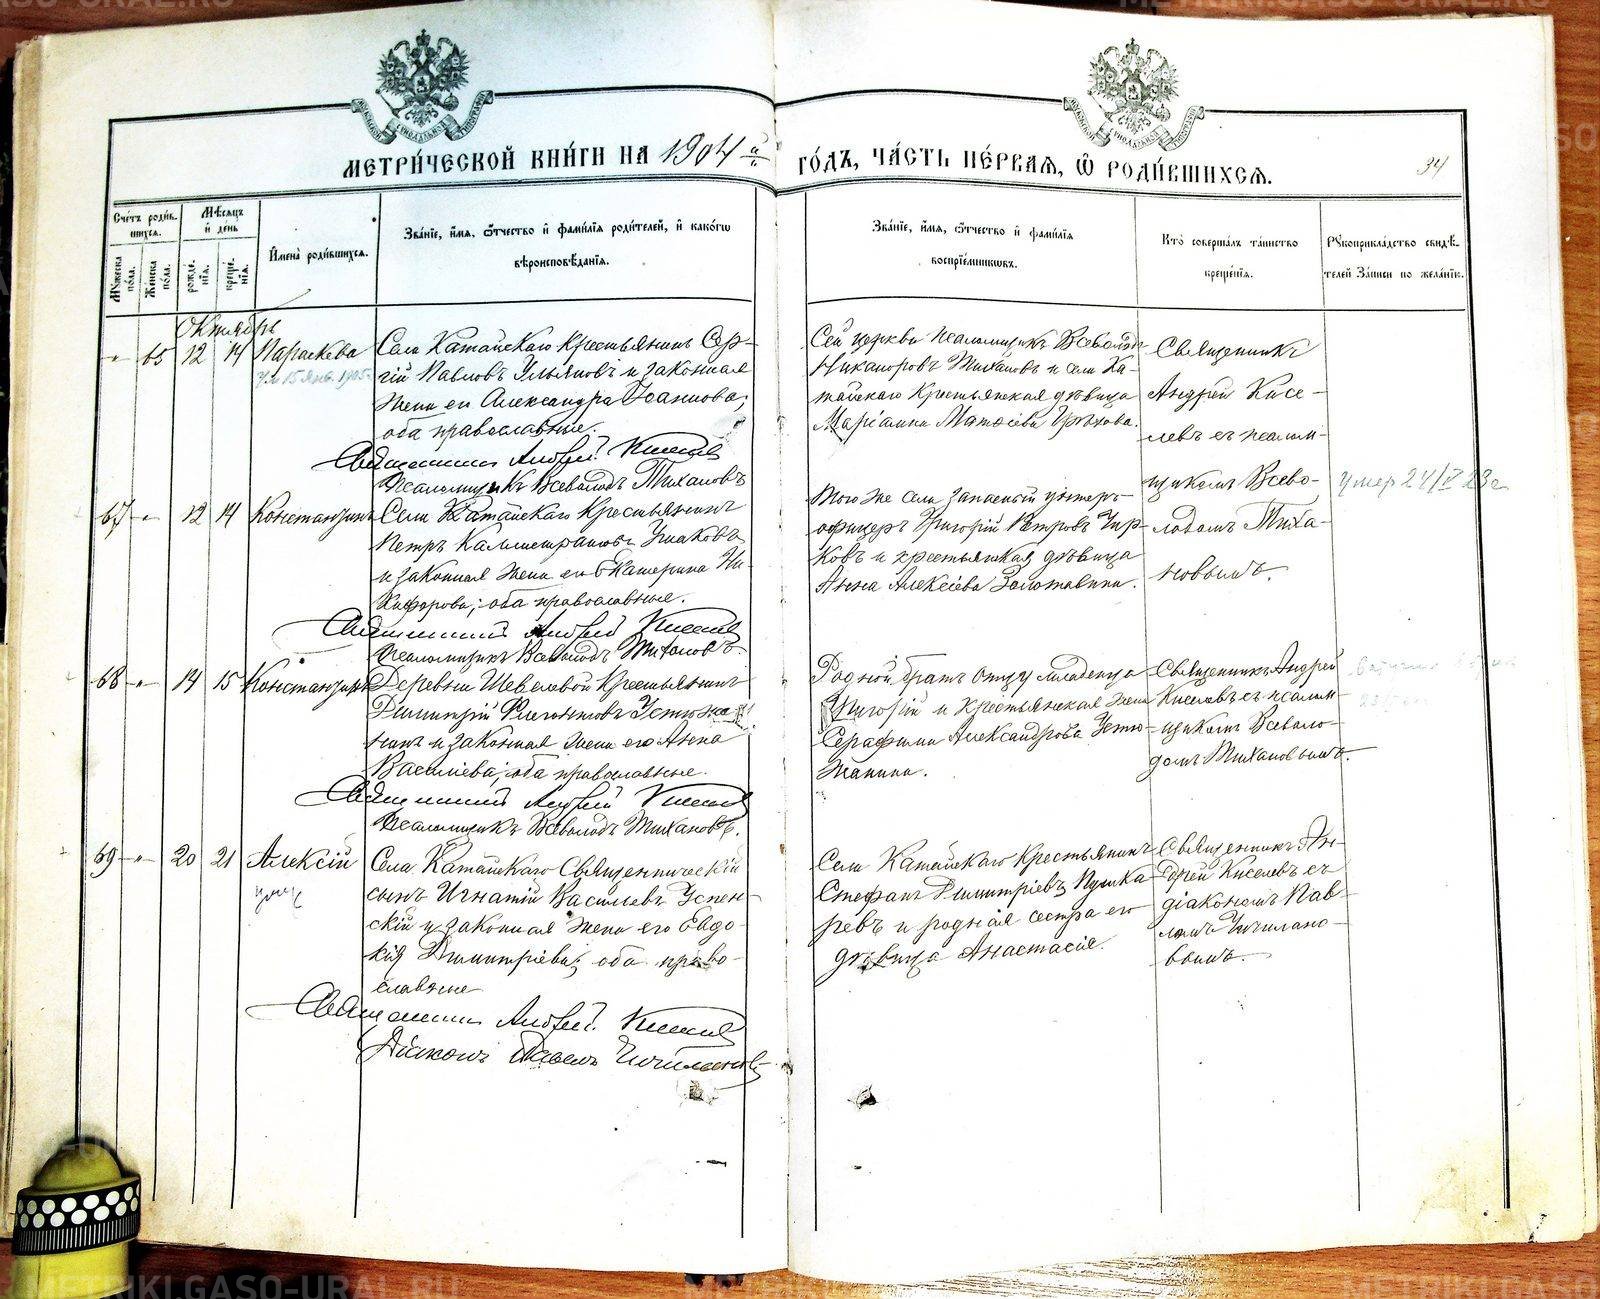 METRIKI.GASO-URAL.RU
МЕТРИ́ЧЕСКОЙ КНИ́ГИ НА 1904 й
ГО́ДЪ, ЧА́СТЬ ПЕ́РВАЯ, Ѡ РОДИ́ВШИХСЯ.
34
Сче́тъ роди́в-
шихся.
Мѣсяцъ
и день
Мꙋжеска по́ла.
Женска пола.
рожде́нїя.
креще́нїя.
И́мена̀ роди́вшихся.
Зва́нїе, и́мя, ѻ҆́тчество и҆ фами́лїя роди́телей, и҆ како́гѡ
вѣроисповѣ́данїя.
Зва́нїе, и́мя, ѻ҆́тчество и҆ фами́лїя
воспрїе́мникѡвъ.
Кто̀ соверша́лъ та́инство
креще́нїя.
Рꙋкоприкла́дство свидѣ́-
телей За́писи по жела́нїю.
Октябрь
65 12 14 Параскева
ум 15 Янв. 1905
Села Катайскаго крестьянинъ Сер-
гій Павловъ Ульяновъ и законная
жена его Александра Іоаннова;
оба православные.
Священникъ Андрей Киселевъ
Псаломщикъ Всеволодъ Тихановъ
Сей церкви псаломщикъ Всеволодъ
Никаноровъ Тихановъ и села Ка-
тайскаго крестьянская дѣвица
Маріамна Матѳіева Грѣхова.
Священникъ
Андрей Кисе-
левъ съ псалом-
щикомъ Всево-
лодомъ Тиха-
новымъ.
67 12 14 Константинъ
Села Катайскаго крестьянинъ
Петръ Каллистратовъ Ушаковъ
и законная жена его Екатерина Ни-
кифорова; оба православные.
Священникъ Андрей Киселевъ
Псаломщикъ Всеволодъ Тихановъ.
Того же села запасный унтеръ-
офицеръ Григорій Петровъ
и крестьянская дѣвица
Анна Алексіева Золотавина.
умер 24/V 23 г
68 14 15 Константинъ
Деревни Шевелевой крестьянинъ
Димитрій Флегонтовъ Устюжа-
нинъ и законная жена его Анна
Василіева; оба православные.
Священникъ Андрей Киселевъ
Псаломщикъ Всеволодъ Тихановъ.
Родной братъ отцу младенца
Григорій и крестьянская жена
Серафима Александрова Устю-
жанина.
Священникъ Андрей
Киселевъ съ псалом-
щикомъ Всеволо-
домъ Тихановымъ.
69 20 21 Алексій
умр
Села Катайскаго Священническій
сынъ Игнатій Васильевъ Успен-
скій и законная жена его Евдо-
кія Димитріевна; оба право-
славные
Священникъ Андрей Киселевъ
Діаконъ Павелъ Чичилановъ
Села Катайскаго крестьянинъ
Стефанъ Димитріевъ Пушка-
ревъ и родная сестра его
дѣвица Анастасія.
Священникъ Ан-
дрей Киселевъ съ
діакономъ Пав-
ломъ Чичилано-
вымъ.
METRIKI.GASO-URAL.RU
METRIKI.GASO-URAL.RU